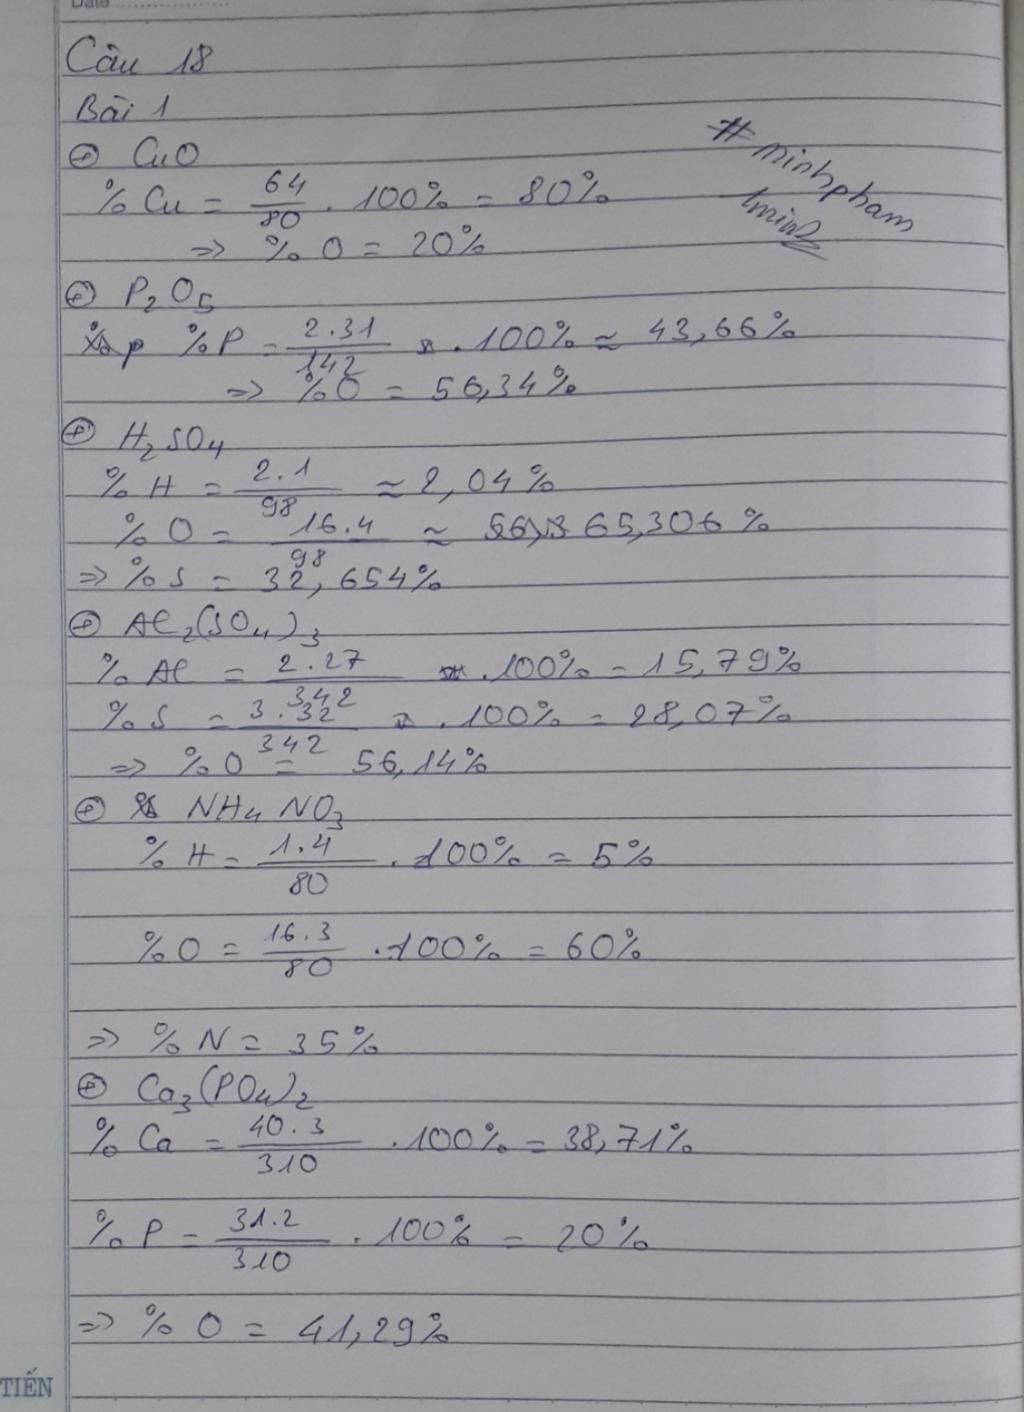 Date
Câu 18
Bài 1
#minhpham
1min2
⊕ CuO
% Cu = 64/80 . 100% = 80%
=> % O = 20%
⊕ P2O5
%P = 2.31/142 . 100% ≈ 43,66%
=> %O = 56,34%
⊕ H2SO4
% H = 2.1/98 ≈ 2,04%
% O = 16.4/98 ≈ 65,306%
=> % S = 32,654%
⊕ Al2(SO4)3
% Al = 2.27/342 . 100% = 15,79%
% S = 3.32/342 . 100% = 28,07%
=> % O = 56,14%
⊕ NH4NO3
% H = 1.4/80 . 100% = 5%
% O = 16.3/80 . 100% = 60%
=> % N = 35%
⊕ Ca3(PO4)2
% Ca = 40.3/310 . 100% = 38,71%
% P = 31.2/310 . 100% = 20%
=> % O = 41,29%
TIẾN